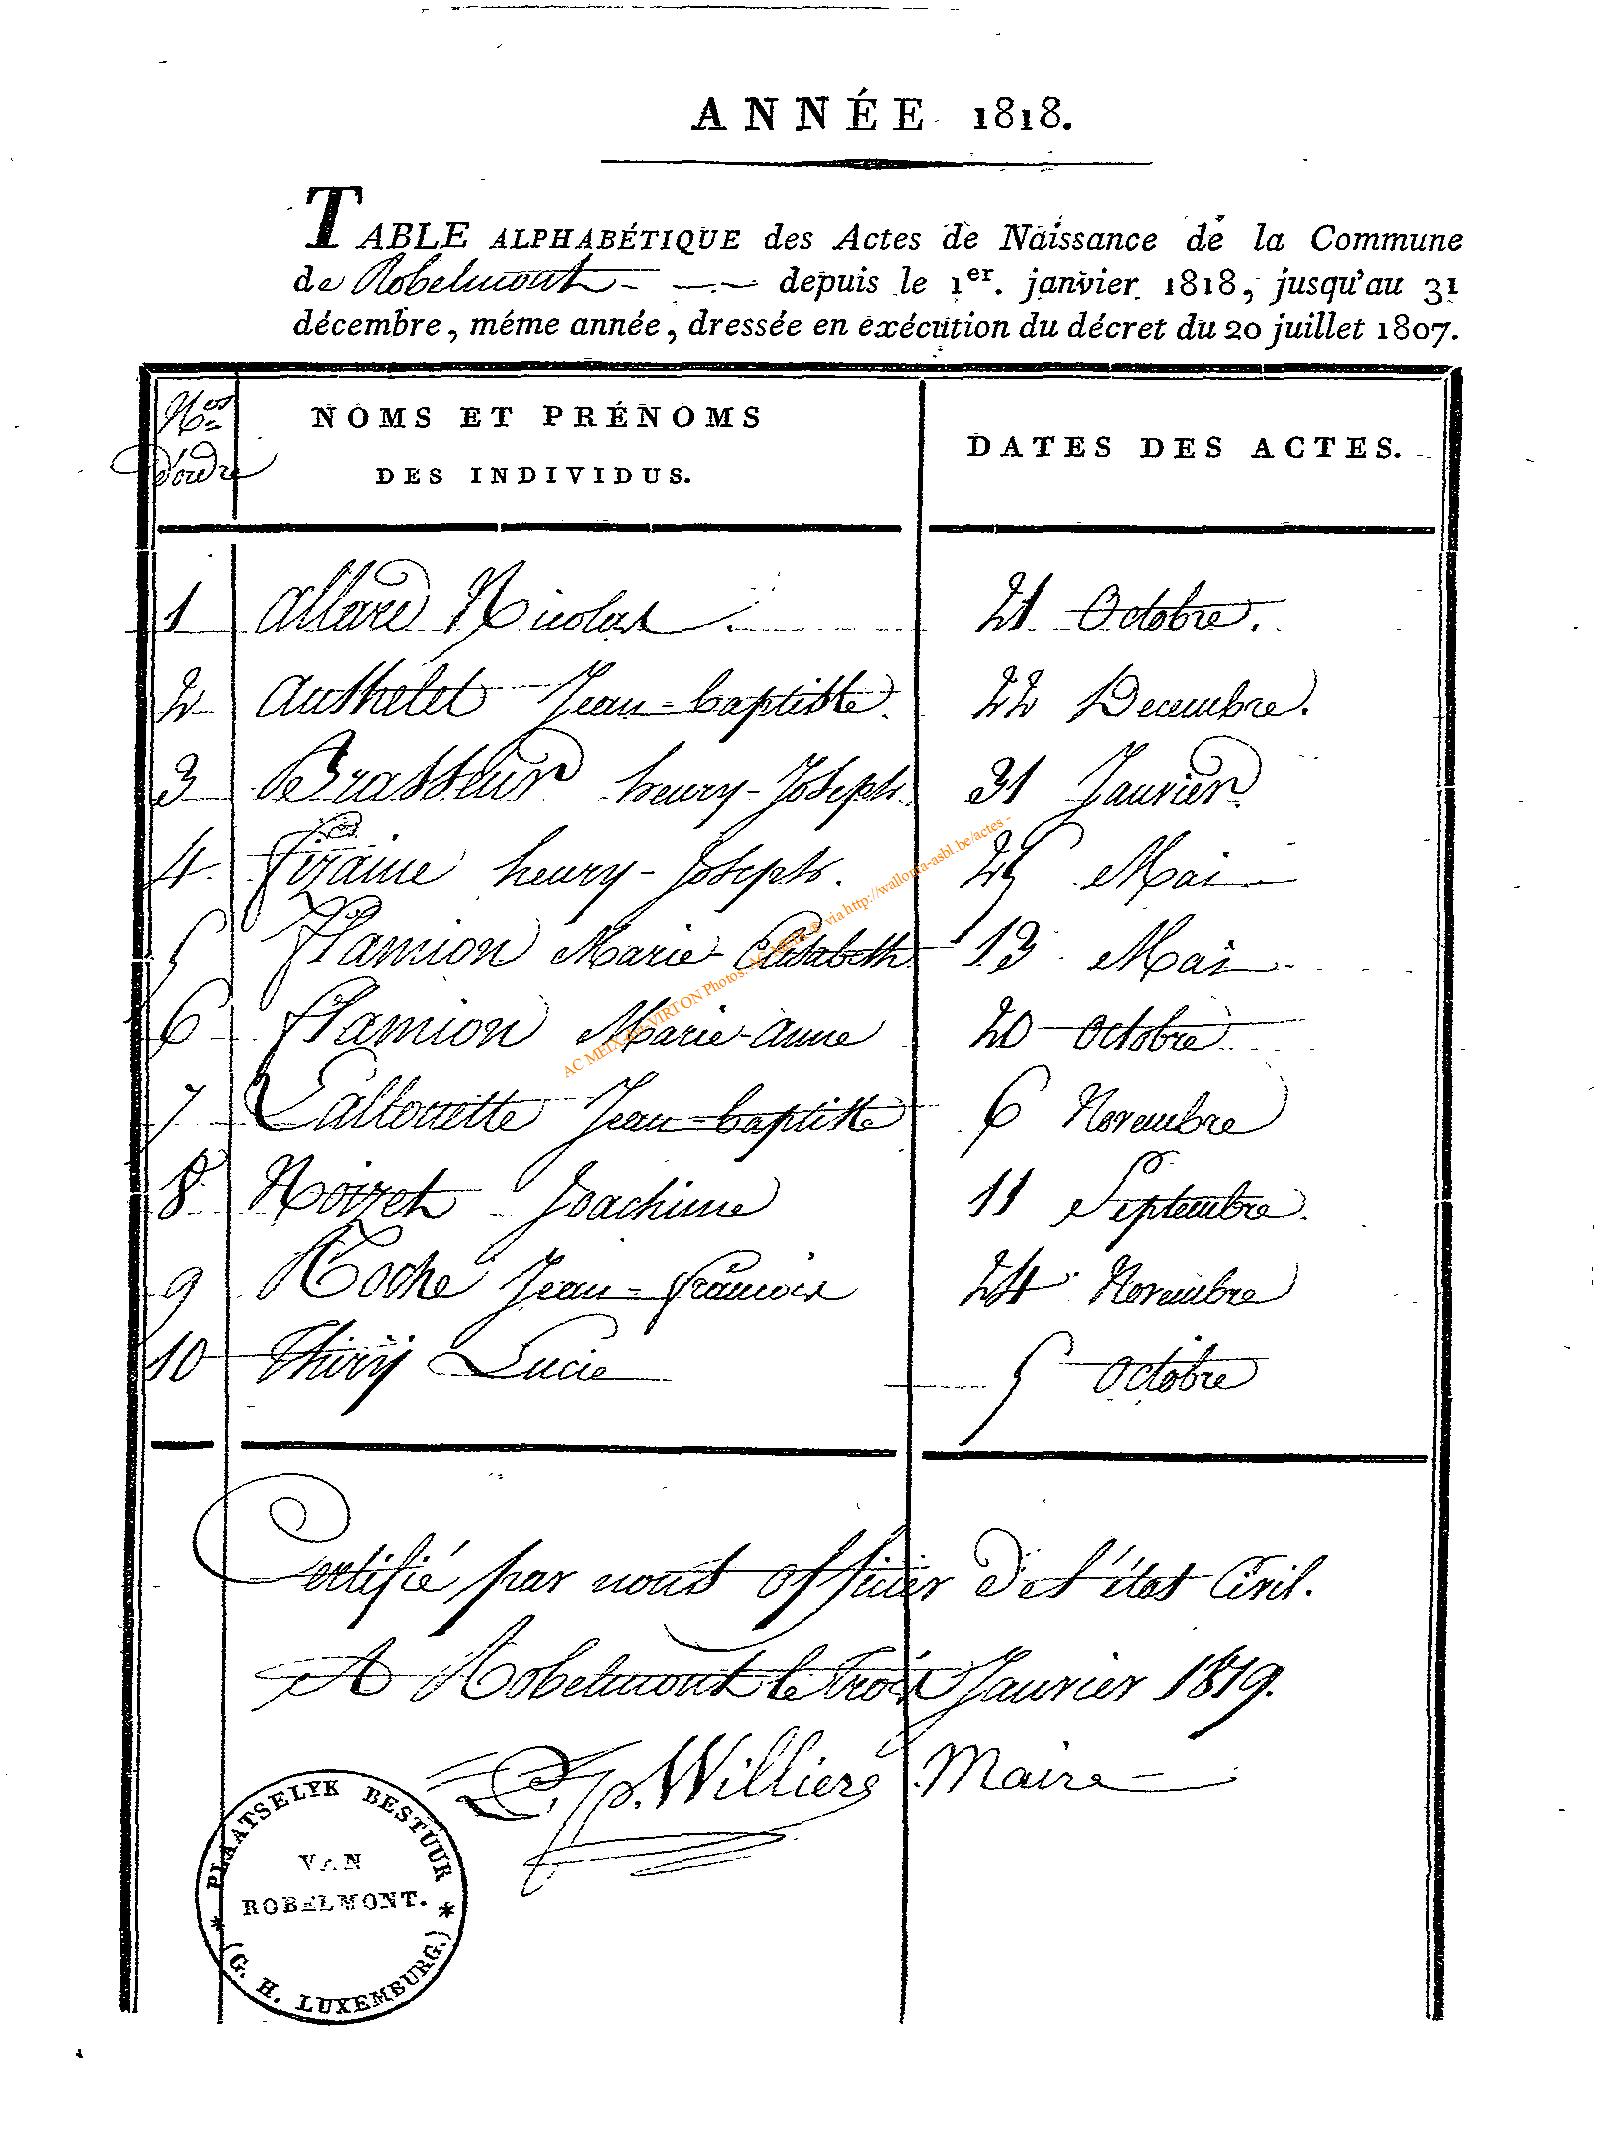 ANNÉE 1818.
TABLE ALPHABÉTIQUE des Actes de Naissance de la Commune
de Robelmont depuis le 1er. janvier 1818, jusqu'au 31
décembre, méme année, dressée en exécution du décret du 20 juillet 1807.
Nos d'ordre
NOMS ET PRÉNOMS
DES INDIVIDUS.
DATES DES ACTES.
1 Allard Nicolas. 21 Octobre.
2 Authelet Jean-baptiste. 22 Decembre.
3 Brasseur henry-Joseph. 31 Janvier.
4 fizaine henry-Joseph. 25 Mai
5 flamion Marie-Elisabeth 13 Mai
6 flamion Marie-anne 20 Octobre
7 Lallouette Jean-baptiste 6 Novembre
8 Noizet Joachime 11 Septembre.
9 Roche Jean-francois 24 Novembre
10 Thiry Lucie 5 Octobre
Certifié par nous officier de l'état Civil.
A Robelmont le trois Janvier 1819.
Williere Maire
PLAATSELYK BESTUUR
VAN
ROBELMONT.
(G. H. LUXEMBURG.)
via http://wallonia-asbl.be/actes -